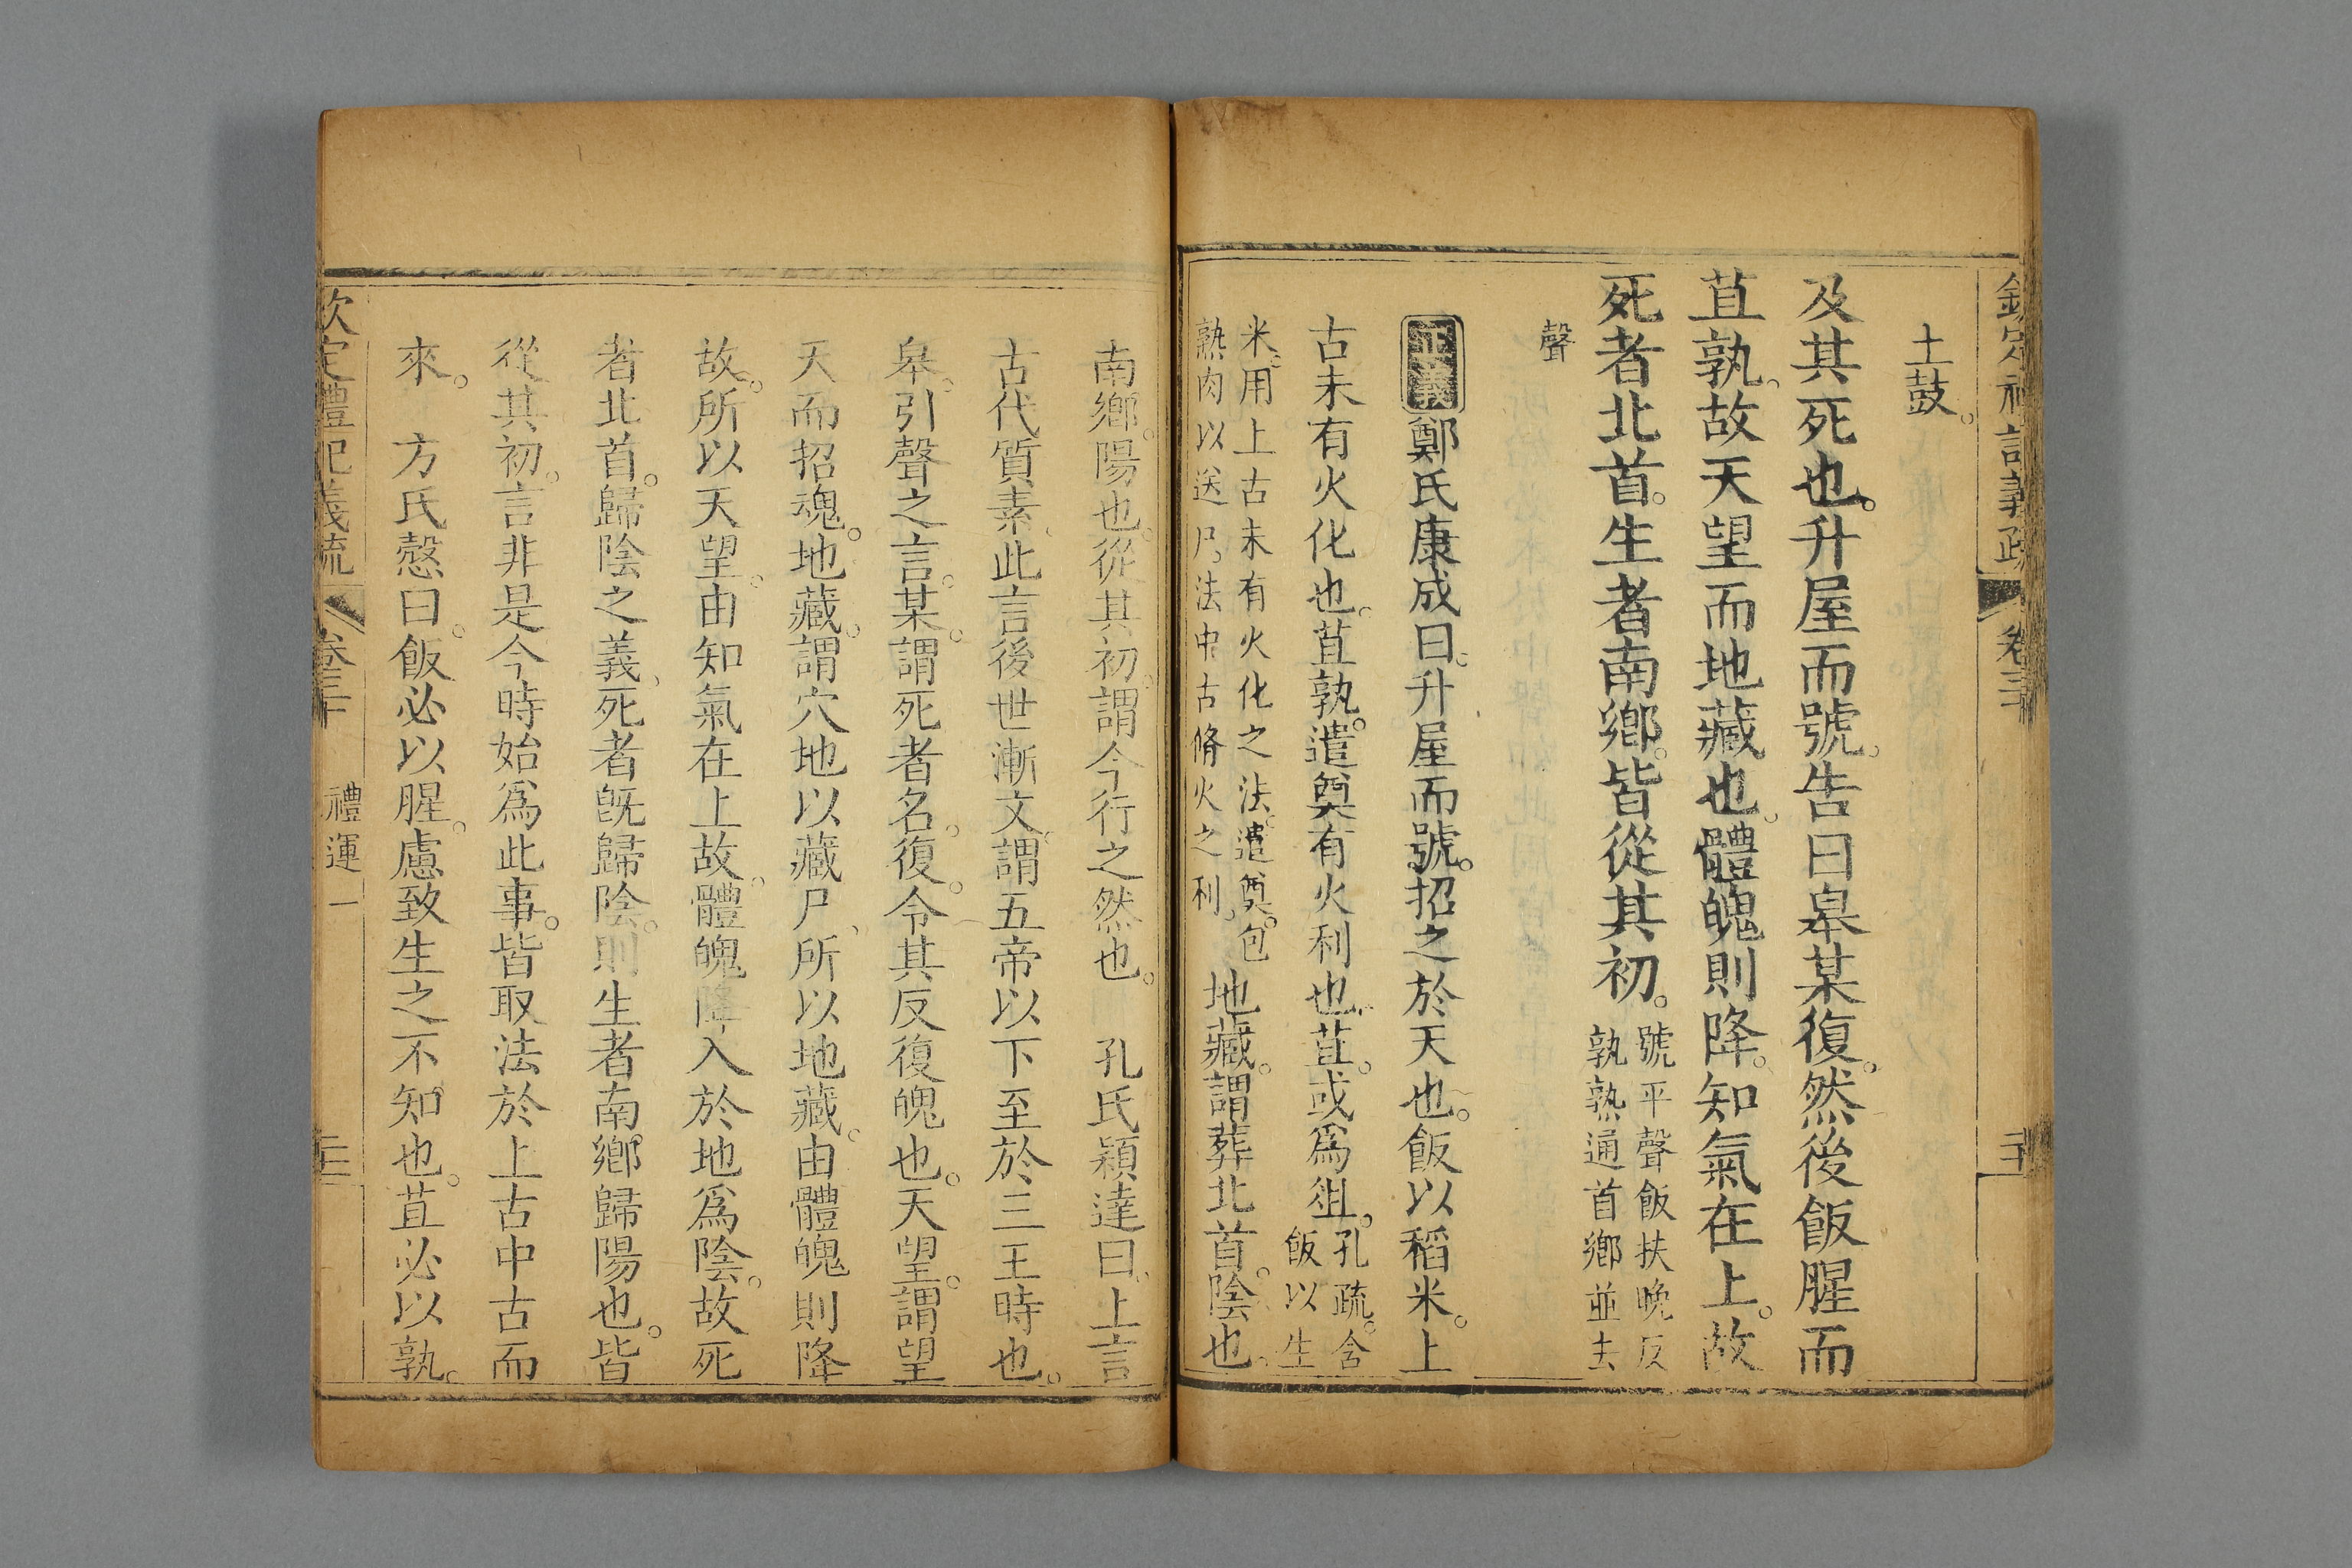 欽定禮記義疏 卷三十
土鼓。
及其死也。升屋而號。告曰皋某復。然後飯腥而
苴孰。故天望而地藏也。體魄則降。知氣在上。故
死者北首。生者南鄉。皆從其初。號平聲飯扶晚反孰熟通首鄉並去
聲
正義鄭氏康成曰。升屋而號。招之於天也。飯以稻米。上
古未有火化也。苴孰。遣奠有火利也。苴。或爲徂。孔疏。含飯以生
米。用上古未有火化之法。遣奠。包熟肉以送尸。法中古脩火之利。地藏。謂葬北首。陰也。
南鄉。陽也。從其初。謂今行之然也。 孔氏穎達曰。上言
古代質素、此言後世漸文。謂五帝以下至於三王時也。
皋。引聲之言。某。謂死者名。復。令其反復魄也。天望。謂望
天而招魂。地藏。謂穴地以藏尸、所以地藏。由體魄則降
故。所以天望。由知氣在上故。體魄降入於地爲陰。故死
者北首。歸陰之義、死者旣歸陰。則生者南鄉歸陽也。皆
從其初。言非是今時始爲此事。皆取法於上古中古而
來。 方氏慤曰。飯必以腥。慮致生之不知也。苴必以孰。
欽定禮記義疏 卷三十 禮運一 三